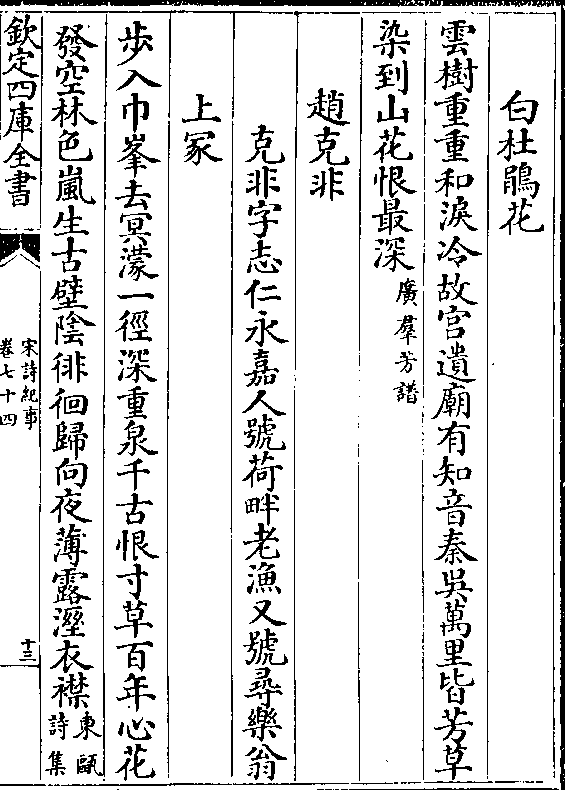 白杜鵑花
雲樹重重和淚冷故宮遺廟有知音秦吳萬里皆芳草
染到山花恨最深廣羣芳譜
趙克非
克非字志仁永嘉人號荷畔老漁又號尋樂翁
上冢
步入巾峯去冥濛一徑深重泉千古恨寸草百年心花
發空林色嵐生古壁陰徘徊歸向夜薄露溼衣襟東甌詩集
欽定四庫全書
宋詩紀事
卷七十四
十三